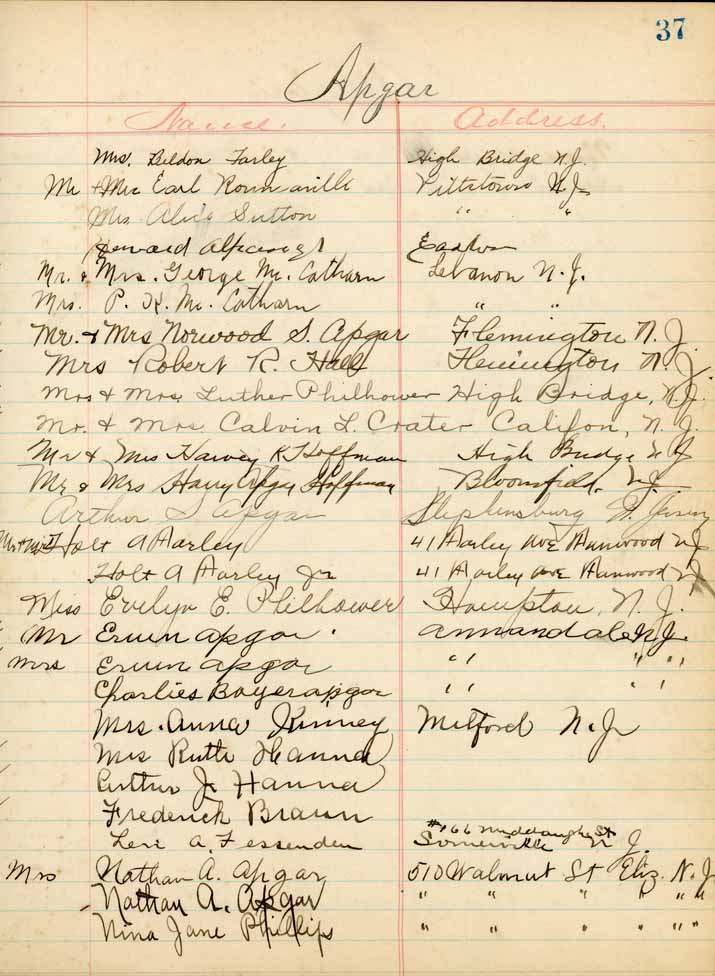 37
Apgar
Name. Address.
Mrs. Beldon Farley High Bridge N.J.
Mr & Mrs Earl Pittstown N.J.
Mrs Alvig Sutton " "
Easton
Mr. & Mrs. George Mc. Catharn Lebanon N.J.
Mrs. P. K. Mc. Catharn " "
Mr. & Mrs Norwood S. Apgar Flemington N.J.
Mrs Robert R. Hall Flemington N.J.
Mrs & Mrs. Luther Philhower High Bridge, N.J.
Mr. & Mrs. Calvin L. Crater Califon, N.J.
Mr & Mrs Harvey K Hoffman High Bridge N J
Mr & Mrs Harry Apgar Hoffman Bloomfield, N.J.
Arthur S Apgar Stephensburg N. Jersey
Holt A Farley 41 Farley Ave Fanwood NJ
Holt A Farley Jr 41 Farley Ave Fanwood NJ
Miss Evelyn E. Philhower Hampton, N.J.
Mr Erwin Apgar. Annandale N.J.
Mrs Erwin Apgar " " "
Charlies Boyer Apgar " " "
Mrs. Anna Kinney Milford N.J.
Mrs Ruth Hanna
Arthur Jr Hanna
Frederick Braun
#166 Middaugh St
Levi A. Fessenden Somerville N J.
Mrs Nathan A. Apgar 510 Walnut St Eliz. N.J
Nathan A. Apgar " " " " " "
Nina Jane Phillips " " " " " "